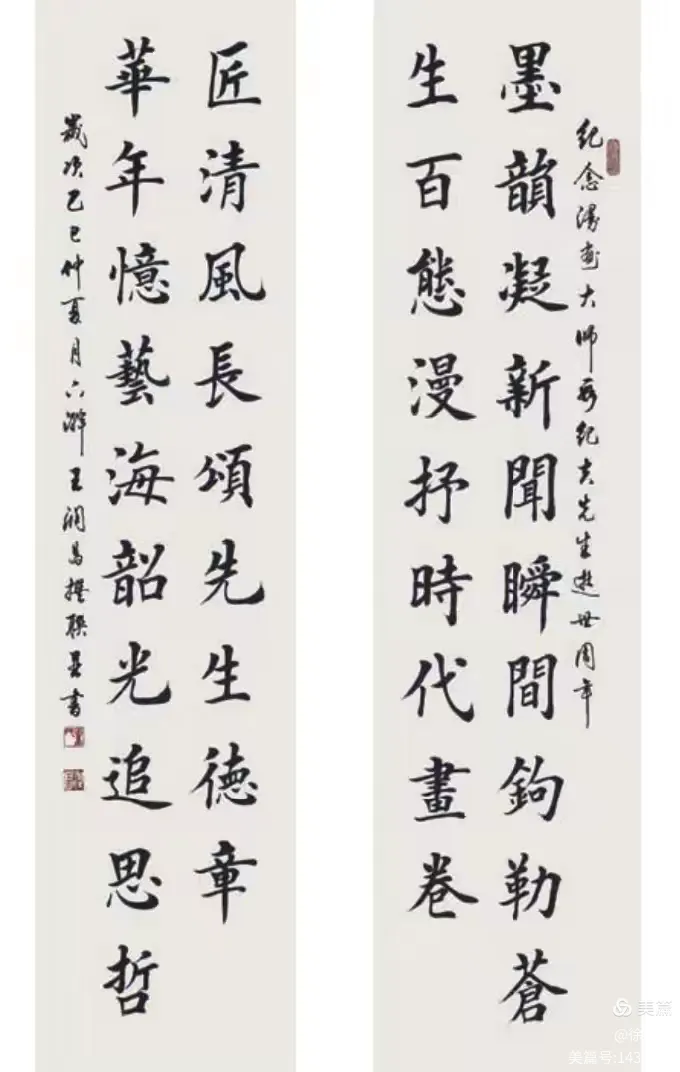 紀念漫畫大师纪先生逝世周年
墨韻凝新聞瞬間鉤勒蒼
生百態漫抒時代畫卷
華年憶藝海韶光追思哲
匠清風長頌先生德章
歲次乙巳仲夏月六王潤撰聯並書
美篇
@徐
美篇号:143